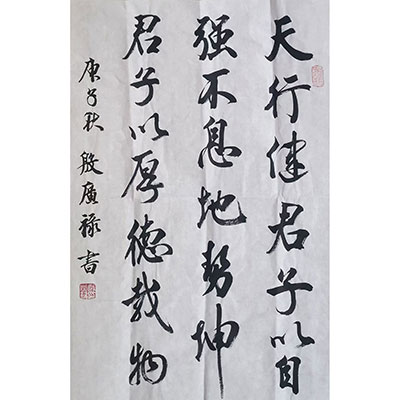 天行健君子以自
强不息地势坤
君子以厚德载物
庚子秋 殷广禄书